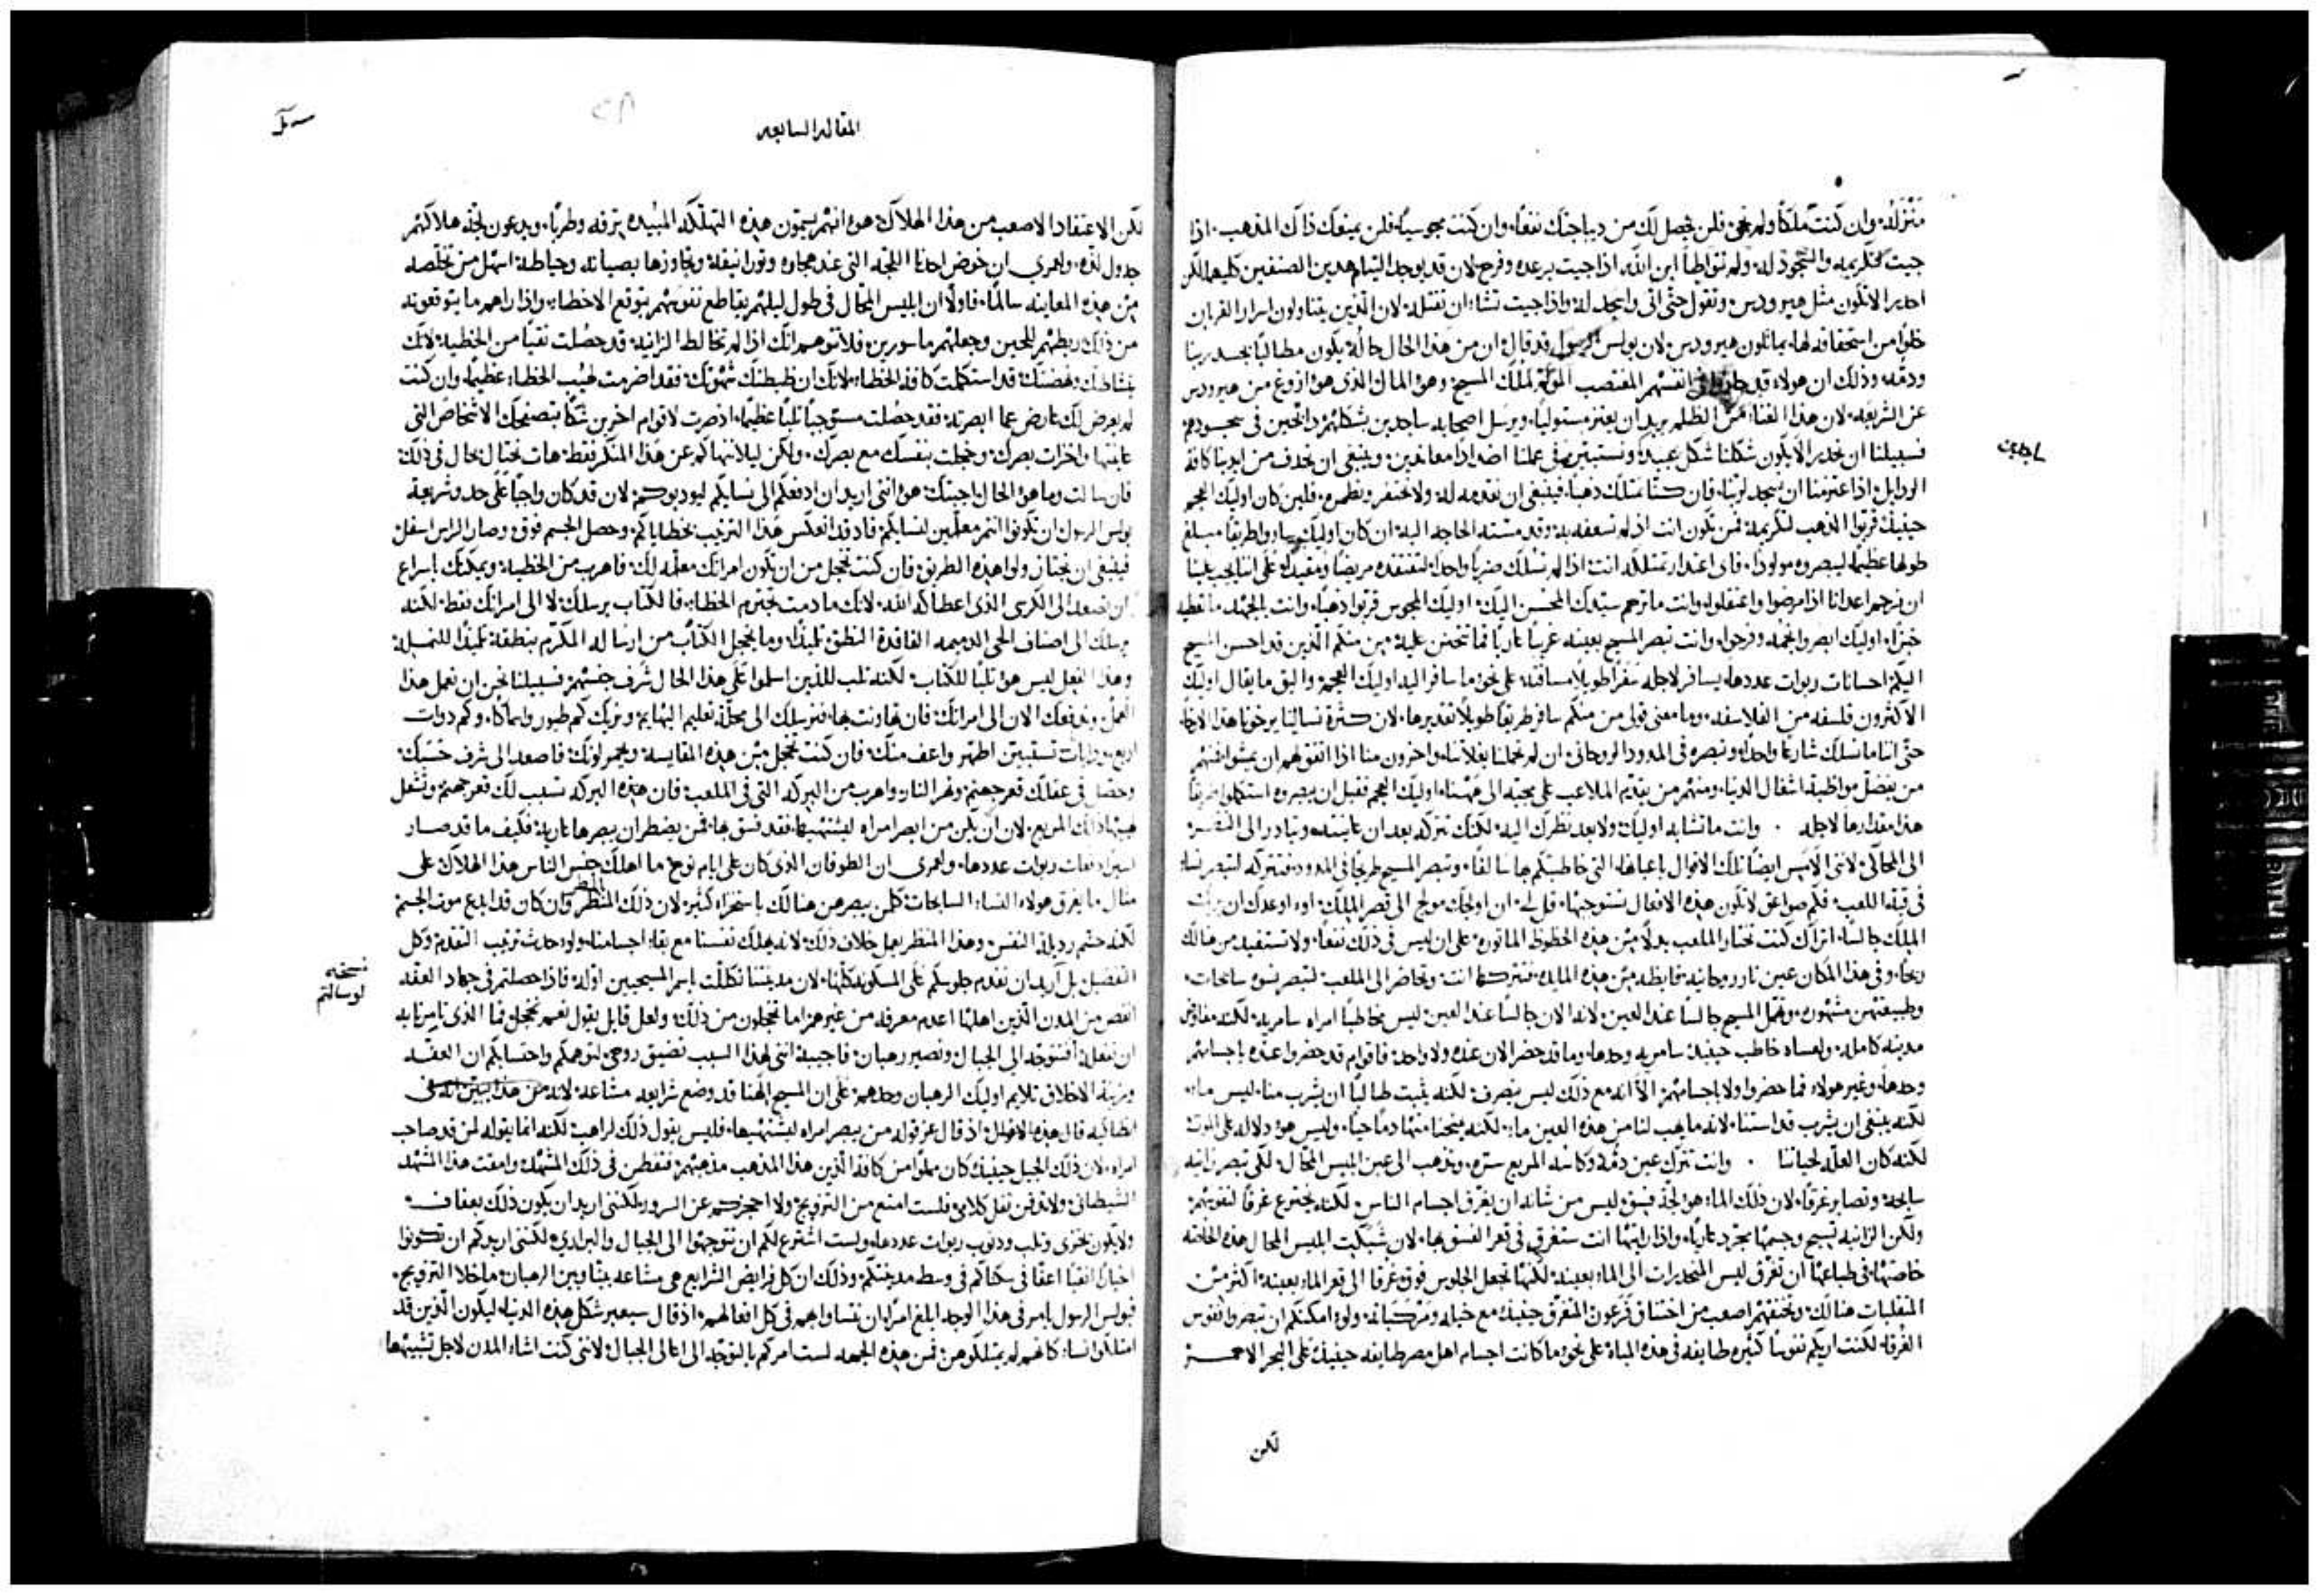 منزله وان كنت ملكاً ولم تجي فلن يحصل لك من ديباجتك نفعاً وان كنت مجوسياً فلن يمنعك ذاك المذهب اذا
جيت لتكريمه والسجود له ولم تتواطأ ابن الله اذا جيت برعده وفرح لان قد يوجد التيام هدين الصنفين كليهما لكن
احدر الا تكون مثل هيرودس وتقول حتى اتى واسجد له واذا جيت تشاء ان تقتله لان الذين يتناولون اسرار القربان
خلواً من استحقاقه لها يماثلون هيرودس لان بولس الرسول قد قال ان من هذا الحال حاله يكون مطالباً بجسد ربنا
ودمه وذلك ان هولاء قد انفسهم المغتصب لملك المسيح وهو المال الذي هو ازوغ من هيرودس
عن الشريعه لان هذا الظلم يريد ان يعتز مستوليا ويرسل اصحابه ساجدين بشكلهم ذابحين في سجودهم
فسبيلنا ان نحدر الا يكون شكلنا شكل عبيد ونستبين في عملنا اضداداً معاندين وينبغي ان نحدف من ايدينا كافة
ساجدين
الردايل اذا اعتزمنا ان نسجد لربنا فان كنا نمتلك ذهباً فينبغي ان نقدمه له ولا نحتفر ونطمره فلين كان اوليك العجم
حينيذ قربوا الذهب لتكريمه فمن تكون انت اذ لم تسعفه به وقد مسته الحاجه اليه ان كان اوليك ساروا طريقا مبلغ
طولها عظيماً ليبصروه مولوداً فاي اعتدار تمتلكه انت اذا لم تسلك ضرباً واحداً لتفتقده مريضاً ومقيداً على اننا يجب علينا
ان نرحم اعدانا اذا مرضوا واعتقلوا وانت ما ترحم سيدك المحسن اليك اوليك المجوس قربوا ذهباً وانت بالجهد ما تعطيه
خبزاً اوليك ابصروا نجمه وفرحوا وانت تبصر المسيح بعينه غريباً عارياً فما تتحنن عليه من منكم الذين قد احسن المسيح
اليكم احسانات ربوات عددها يسافر لاجله سفراً طويلاً مسافته على نحو ما سافر اليه اوليك العجم واليق ما يقال اوليك
الاكثرون فلسفه من الفلاسفه وما معنى قولي من منكم سافر طريقاً طويلاً تقديرها لان كثرة نسالنا يرخونا هذا الارخاء
حتى اننا ما نسلك شارعاً واحداً ونبصره في المدود الروحاني ان لم تحملنا بغالنا واخرون منا اذا اتفق لهم ان يمشوا فمنهم
من يفضل مواظبة اشغال الدنيا ومنهم من يقدم الملاعب على مجيه الى ههنا اوليك العجم فقبل ان يبصروه استكملوا طريقاً
هذا مقدارها لاجله وانت ما تشابه اوليك ولا بعد نظرك اليه لكنك تتركه بعد ان عاينته وتبادر الى
الى المحاكي لانني الامس ايضاً تلك الاقوال باعيانها التي خاطبتكم بها سالفاً وتبصر المسيح طريحاً في المدود فتتركه لتبصر نساء
في قبة اللعب فلكم صواعق لا تكون هذه الافعال تستوجبها قل لي ان اولجك مولج الى قصر الملك او اوعدك ان يريك
الملك جالساً اتراك كنت تختار الملعب بدلاً من هذه الحظوظ الماثوره على ان ليس في ذلك نفعاً ولا تستفيد من هنالك
ربحاً وفي هذا المكان عين نار روحانيه فايظه من هذه المايده فتتركها انت وتحاضر الى الملعب لتبصر نسوه سابحات
وطبيعتهن مشهوره وتمهل المسيح جالساً عند العين لانه الان جالساً عند العين ليس مخاطباً امراه سامريه لكنه مفاوض
مدينه كامله ولعساه خاطب حينيذ سامريه وحدها وما قد حضر الان عنده ولا واحد فاقوام قد حضروا عنده باجسامهم
وحدها وغير هولاء فما حضروا ولا باجسامهم الا انه مع ذلك ليس ينصرف لكنه يثبت طالباً ان يشرب منا ليس ماء
لكنه ينبغي ان يشرب قداستنا لانه ما يهب لنا من هذه العين ماء لكنه يمنحنا منها دماً حياً وليس هو دلاله على الموت
لكنه كان العله لحياتنا وانت تترك عين دمه وكاسه المريع ستره وتذهب الى عين ابليس المحال لكي تبصر زانيه
سابحه وتصابر غرقاً لان ذلك الماء هو لجة فسق ليس من شانه ان يغرق اجسام الناس لكنه يخترع غرقاً لنفوسهم
ولكن الزانيه تسبح وجسمها مجرد عارياً واذا رايتها انت ستغرق في قعر الفسق بها لان شبكة ابليس المحال هذه الخاصه
خاصتها في طباعها ان تغرق ليس المنحدرات الى الماء بعينه لكنها تجعل الجلوس فوق غرقاً الى قعر الماء بعينه اكثر من
المتقلبات هنالك وتخنقهم اصعب من اختناق فرعون المغرق حينيذ مع خيله ومركباته ولو امكنكم ان تبصروا نفوس
الغرقا لكنت اريكم نفوساً كثيره طايفه في هذه المياه على نحو ما كانت اجسام اهل مصر طايفه حينيذ على البحر الاحمر
لكن
المقاله السابعه
لكن الاعتقاد الاصعب من هذا الهلاك هو انهم يسمون هذه التهلكه المبيده ترفه وطرباً ويدعون لجة هلاكهم
جدول لذه ولعمري ان خوض احدنا اللجه التي عند مجاوره وتجاوزها بصيانه وحياطه اسهل من تخلصه
من هذه المعاينه سالماً فاولاً ان ابليس المحال في طول ليلهم يقاطع نفوسهم بتوقع الاخطار واذا راهم ما يتوقعونه
من ذلك ربطهم للحين وجعلهم ماسورين فلا تتوهم انك اذا لم تخالط الزانيه قد حصلت نقياً من الخطيه لانك
بنشاطك ونهضتك قد استكملت كافة الخطاء لانك ان ضبطتك شهوتك فقد اضرمت لهيب الخطاء عظيماً وان كنت
لم يعرض لك عارض مما ابصرته فقد حصلت مستوجباً ثلباً عظيماً اذ صرت لاقوام اخرين شكاً بتصفحك الاشخاص التي
عاينتها واخزات بصرك وخجلت بنفسك مع بصرك ولكن ليلا ننهاكم عن هذا المنكر فقط هات نحتال بحال في ذلك
فان سالت وما هو الحال اجبتك هو انني اريد ان ادفعكم الى نسايكم ليودبوكم لان قد كان واجباً على حد وشريعة
بولس الرسول ان تكونوا انتم معلمين لنسايكم فاذ قد انعكس هذا الترتيب بخطاياكم وحصل الجسم فوق وصار الراس اسفل
فينبغي ان نجتاز ولو هذه الطريق فان كنت تخجل من ان تكون امراتك معلمه لك فاهرب من الخطيه ويمكنك باسراع
ان تصعد الى الكرسي الذي اعطاكه الله لانك ما دمت تجترم الخطاء فالكتاب يرسلك لا الى امراتك فقط لكنه
يرسلك الى اصناف الحي الدميمه الفاقدة النطق تلميذاً وما يخجل الكتاب من ارساله المكرم بنطقه تلميذاً للنمله
وهذا الفعل ليس هو ثلباً للكتاب لكنه ثلب للذين اسلموا على هذا الحال شرف جنسهم فسبيلنا نحن ان نعمل هذا
العمل وندفعك الان الى امراتك فان تهاونت بها فنرسلك الى محلة تعليم البهايم ونريك كم طيور واسماكا وكم دوات
اربع ودبابات تستبين اطهر واعف منك فان كنت تخجل من هذه المقايسه ويحمر لونك فاصعد الى شرف جنسك
وحصل في عقلك قعر جهنم ونهر النار واهرب من البركه التي في الملعب فان هذه البركه تسبب لك قعر جهنم وتشعل
لهيبها ذاك المريع لان ان يكن من ابصر امراه ليشتهيها فقد فسق بها فمن يضطر ان يبصرها عاريه فكيف ما قد صار
اسيراً دفعات ربوات عددها ولعمري ان الطوفان الذي كان على ايام نوح ما اهلك جنس الناس هذا الهلاك على
مثال ما يغرق هولاء النساء السابحات كلمن يبصرهن هنالك باستخزاء كثير لان ذلك المطر وان كان قد ابدع موت الجسم
لكنه حسم رذيلة النفس وهذا المنظر يعمل خلاف ذلك لانه يهلك نفسنا مع بقاء اجسامنا ولو حدث ترتيب التقدم وكل
نسخه
لو سالتم
التفضيل بل اريد ان نقدم جلوسكم على المسكونه كلها لان مدينتنا تكللت باسم المسيحيين اوله فاذا حصلتم في جهاد العفه
انقص من المدن الذين اهلها اعدم معرفه من غيرهم اما تخجلون من ذلك ولعل قايل يقول نعم نخجل فما الذي تامرنا به
ان نفعله افنتوجه الى الجبال ونصير رهبان فاجيبه انني لهذا السبب تضيق روحي لتوهمكم واحتسابكم ان العفه
وزينة الاخلاق تلايم اوليك الرهبان وحدهم على ان المسيح الهنا قد وضع شرايعه مشاعه
قال هذه الاقوال اذ قال عز قوله من يبصر امراه ليشتهيها فليس يقول ذلك لراهب لكنه انما يقوله لمن قد صاحب
امراه لان ذلك الجبل حينيذ كان مملواً من كافة الذين هذا المذهب مذهبهم فتفطن في ذلك المشهد وامقت هذا المشهد
الشيطاني ولا تدفن ثقل كلامي فلست امنع من التزويج ولا احجزكم عن السرور لكنني اريد ان يكون ذلك بعفاف
ولا يكون بخزي وثلب وذنوب ربوات عددها ولست اشترع لكم ان تتوجهوا الى الجبال والبراري لكنني اريدكم ان تكونوا
اخياراً اتقيا اعفا في سكناكم في وسط مدينتكم وذلك ان كل فرايض الشرايع هي مشاعه بيننا وبين الرهبان ما خلا التزويج
فبولس الرسول يامر في هذا الوجه ابلغ امراً ان نتساوا بهم في كل افعالهم اذ قال سيعبر شكل هذه الدنيا ليكون الذين قد
امتلكوا نساء كانهم لم يمتلكوهن فمن هذه الجهه لست امركم بالتوجه الى اعالي الجبال لانني كنت اشاء المدن لاجل تشبيهها